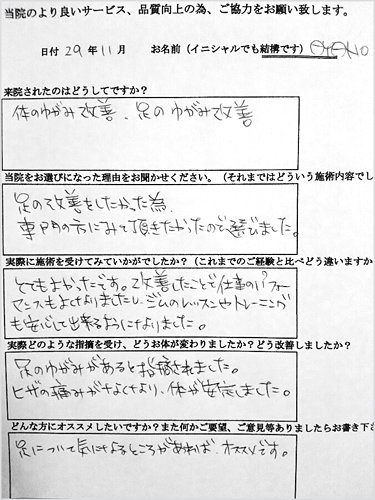 当院のより良いサービス、品質向上の為、ご協力をお願い致します。
日付 29 年 11 月 お名前（イニシャルでも結構です）
来院されたのはどうしてですか？
体のゆがみ改善、足のゆがみ改善
当院をお選びになった理由をお聞かせください。（それまではどういう施術内容でし
足の改善をしたかった為、
専門の方にみて頂きたかったので選びました。
実際に施術を受けてみていかがでしたか？（これまでのご経験と比べどう違いますか
とてもよかったです。改善したことで仕事のパフォ
ーマンスもよくなりましたし、ジムのレッスンやトレーニング
も安心して出来るようになりました。
実際どのような指摘を受け、どうお体が変わりましたか？どう改善しましたか？
足のゆがみがあると指摘されました。
ヒザの痛みがなくなり、体が安定しました。
どんな方にオススメしたいですか？また何かご要望、ご意見等ありましたらお書き下さ
足について気になるところがあれば、オススメです。